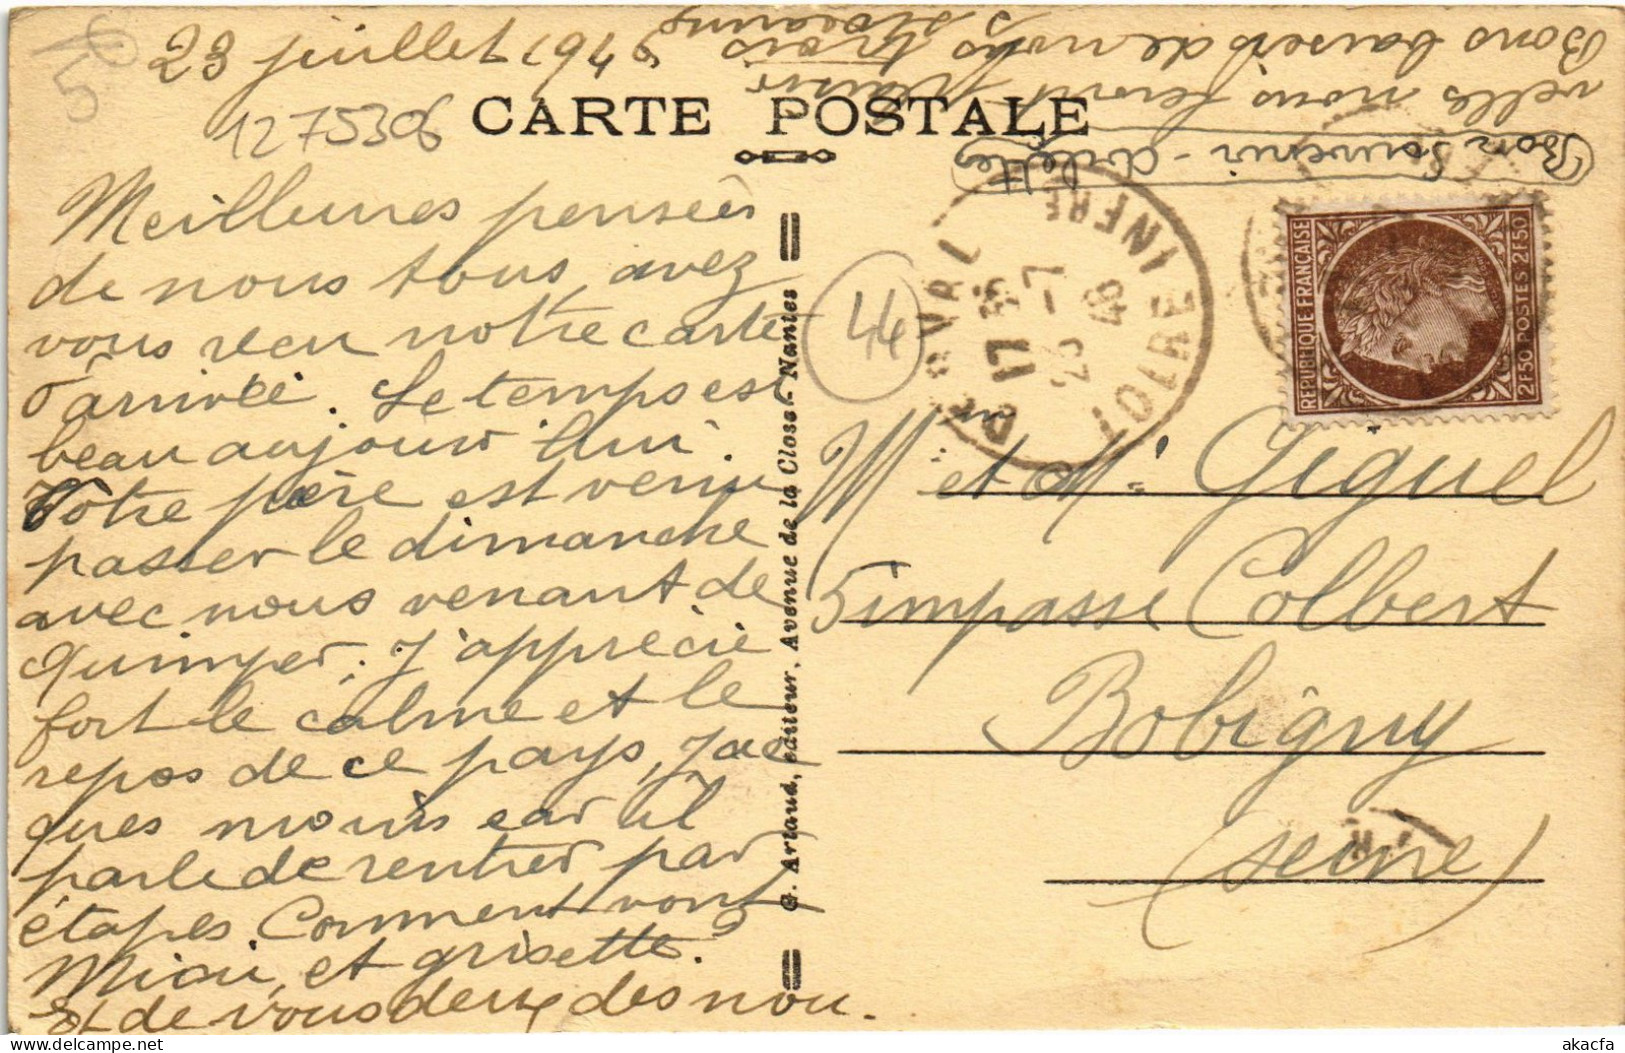 23 juillet 1946
1275306
CARTE POSTALE
Meilleures pensées
de nous tous, avez
vous reçu notre carte
d'arrivée. Le temps est
beau aujourd'hui.
Votre père est venu
passer le dimanche
avec nous venant de
Quimper. J'apprécie
fort le calme et le
repos de ce pays, Jac
ques moins car il
parle de rentrer par
étapes Comment vont
et grisette?
Et de vous deux des nou.
velles nous feront plaisir
Bons baisers de nous trois
Bon souvenir
G. Artaud, éditeur, Avenue de la Close - Nantes
44
DERVAL
17 35
23 -7
46
LOIRE INFRE
REPUBLIQUE FRANÇAISE
2F.50 POSTES 2F50
M et Me Jiguel
5 impasse Colbert
Bobigny
(Seine)
akacfa